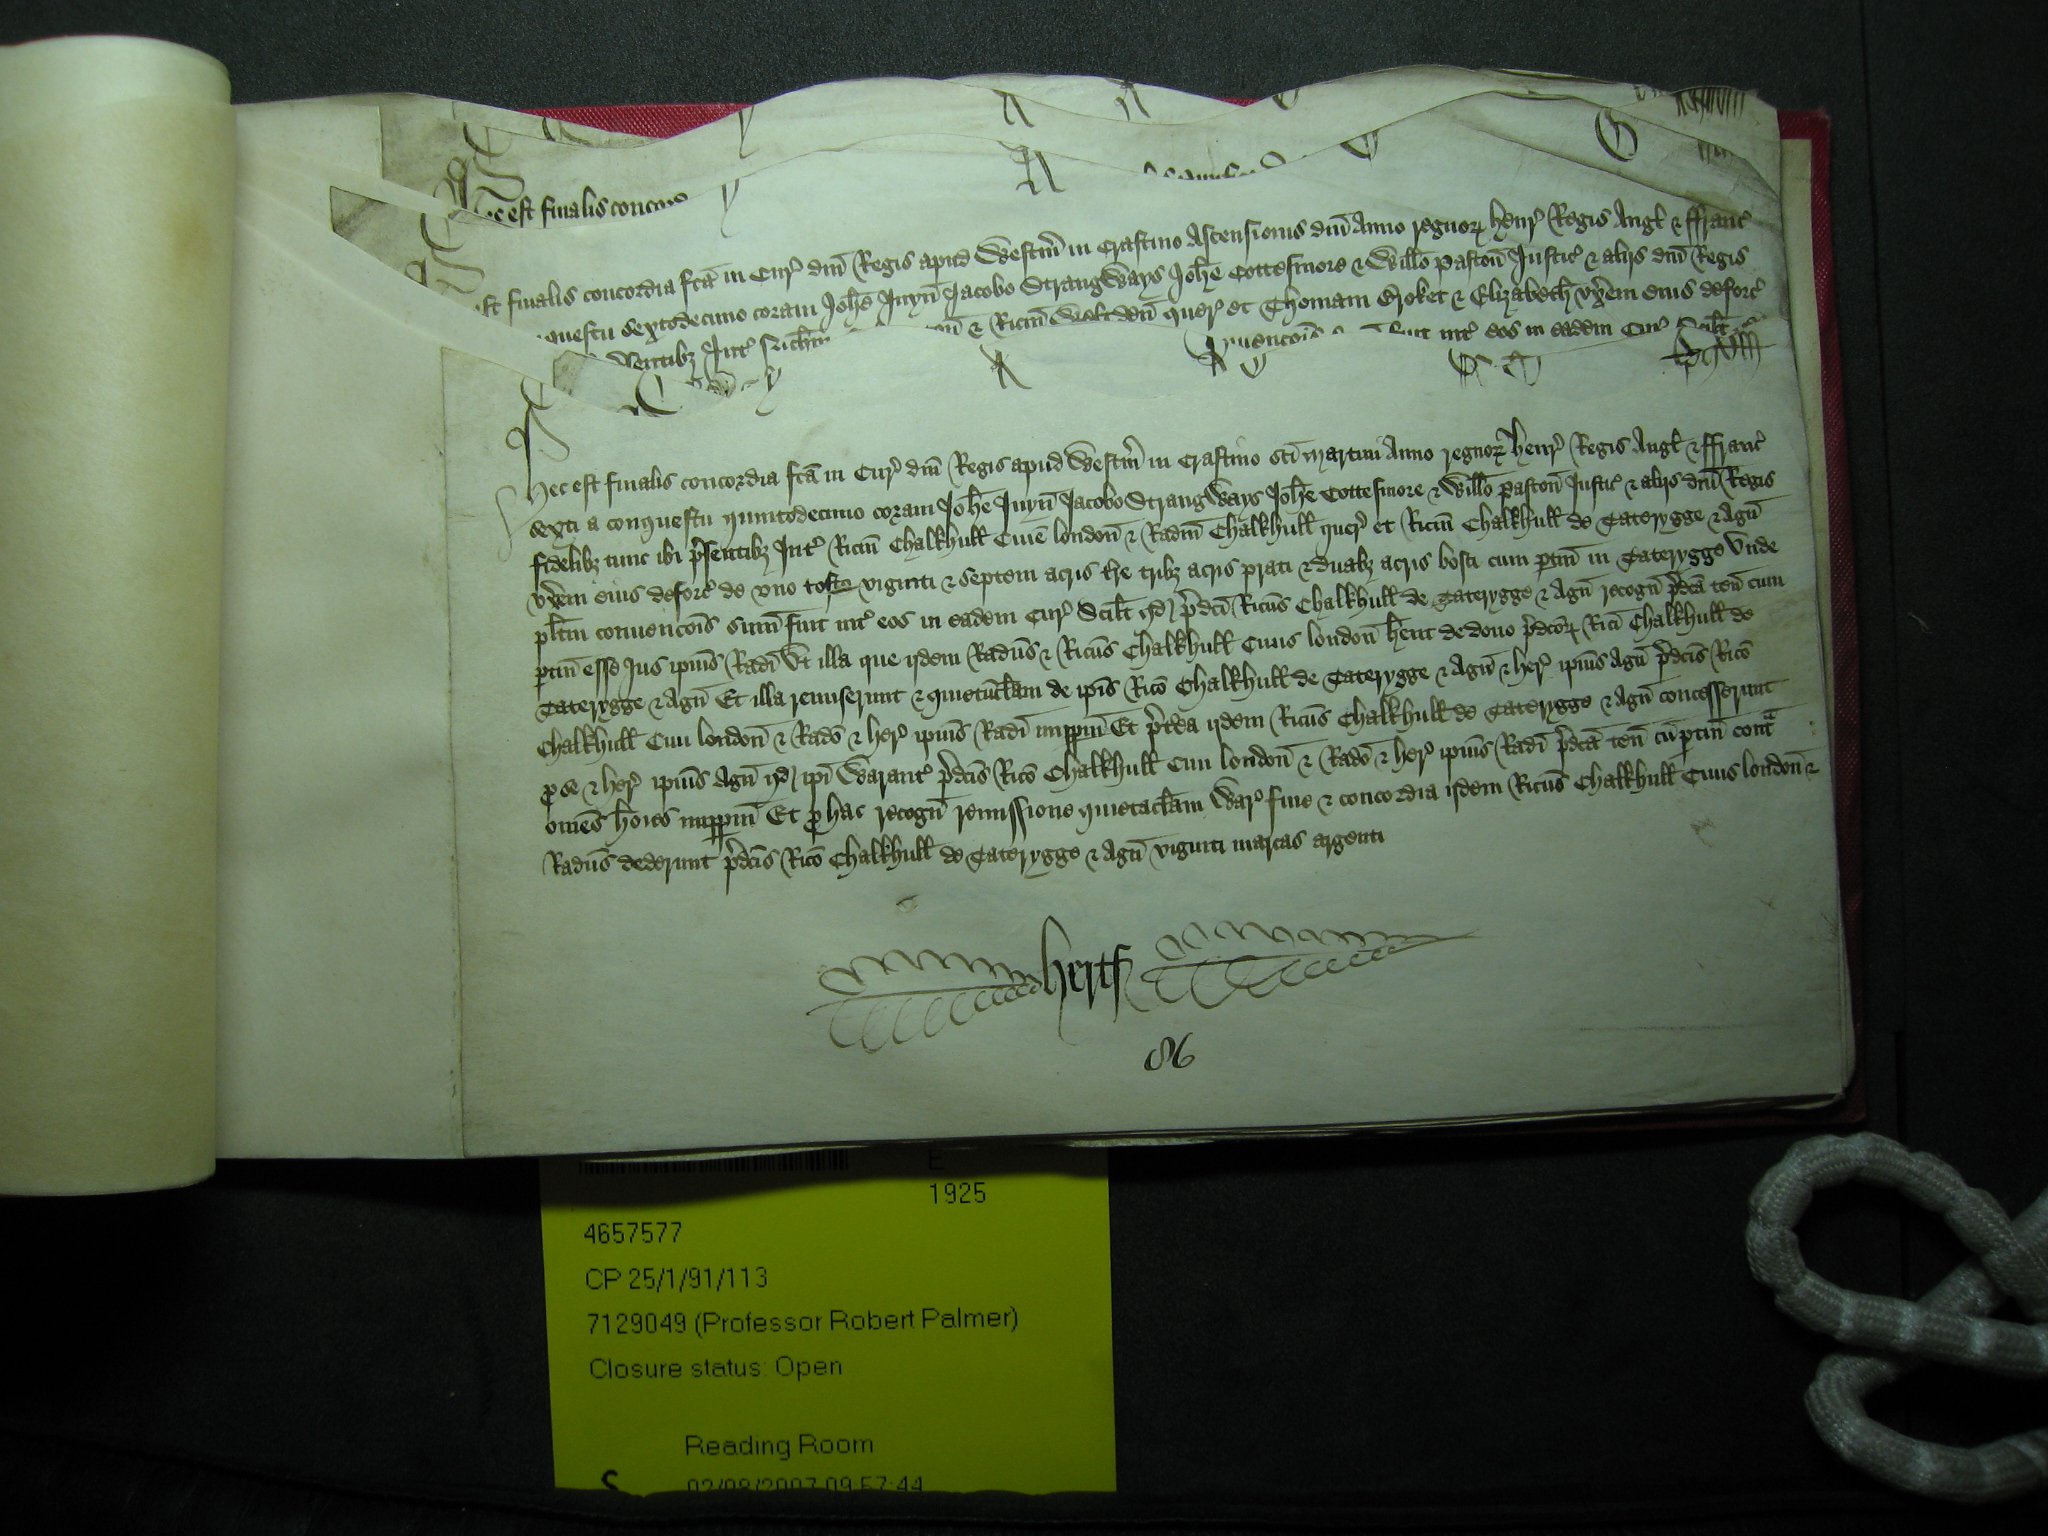 ec est finalis concord
est finalis concordia fcā in Cur' dnī Regis apud Westm̄ in Crastino Ascensionis dnī Anno regnoꝝ Henr' Regis Angl' & ffranc'
questu sextodecimo coram Joħe Juyn̄ Jacobo Strangways Joħe Cottesmore & Willo Paston̄ Justic' & aliis dnī Regis
sentibꝫ Int' & Ricm̄ quer' et Thomam Broket & Elizabeth vx̄em eius deforc'
int' eos in eadem Cur' Scilt
Hec est finalis concordia fcā in Cur' dnī Regis apud Westm̄ in Crastino sc̄i Martini Anno regnoꝝ Henr' Regis Angl' & ffranc'
sexti a conquestu quintodecimo coram Joħe Juyn̄ Jacobo Strangways Joħe Cottesmore & Willo Paston̄ Justic' & aliis dnī Regis
fidelibꝫ tunc ibi p̄sentibꝫ Int' Ricm̄ Chalkhull Ciuē london̄ & Radm̄ Chalkhull quer' et Ricm̄ Chalkhull de Caterygge & Agn̄
vx̄em eius deforc' de vno tofto viginti & septem acris t̄re tribꝫ acris prati & duabꝫ acris bosci cum ptin̄ in Caterygge Vnde
pl̄itm conuencōis sum̄ fuit int' eos in eadem Cur' Scilt qd p̄dc̄i Ricūs Chalkhull de Caterygge & Agn̄ recogn̄ p̄dc̄a ten̄ cum
ptin̄ esse Jus ipīus Radī Vt illa que ijdem Radūs & Ricūs Chalkhull Ciuis london̄ hent de dono p̄dc̄oꝝ Ricī Chalkhull de
Caterygge & Agn̄ Et illa remiserunt & quietūclam̄ de ip̄is Ricō Chalkhull de Caterygge & Agn̄ & her' ipīus Agn̄ p̄dc̄is Ricō
Chalkhull Ciui london̄ & Radō & her' ipīus Radī imppm̄ Et p̄t̄ea ijdem Ricūs Chalkhull de Caterygge & Agn̄ concesserunt
ꝓ se & her' ipīus Agn̄ qd ip̄i Warant' p̄dc̄is Ricō Chalkhull Ciui london̄ & Radō & her' ipīus Radī p̄dc̄a ten̄ cū ptin̄ cont̄a
om̄es hoīes imppm̄ Et ꝓ hac recogn̄ remissione quietaclam̄ War' fine & concordia ijdem Ricūs Chalkhull Ciuis london̄ &
Radūs dederunt p̄dc̄is Ricō Chalkhull de Caterygge & Agn̄ viginti marcas argenti
Hertf
86
E
1925
4657577
CP 25/1/91/113
7129049 (Professor Robert Palmer)
Closure status: Open
Reading Room
S
02/08/2007 09:57:44